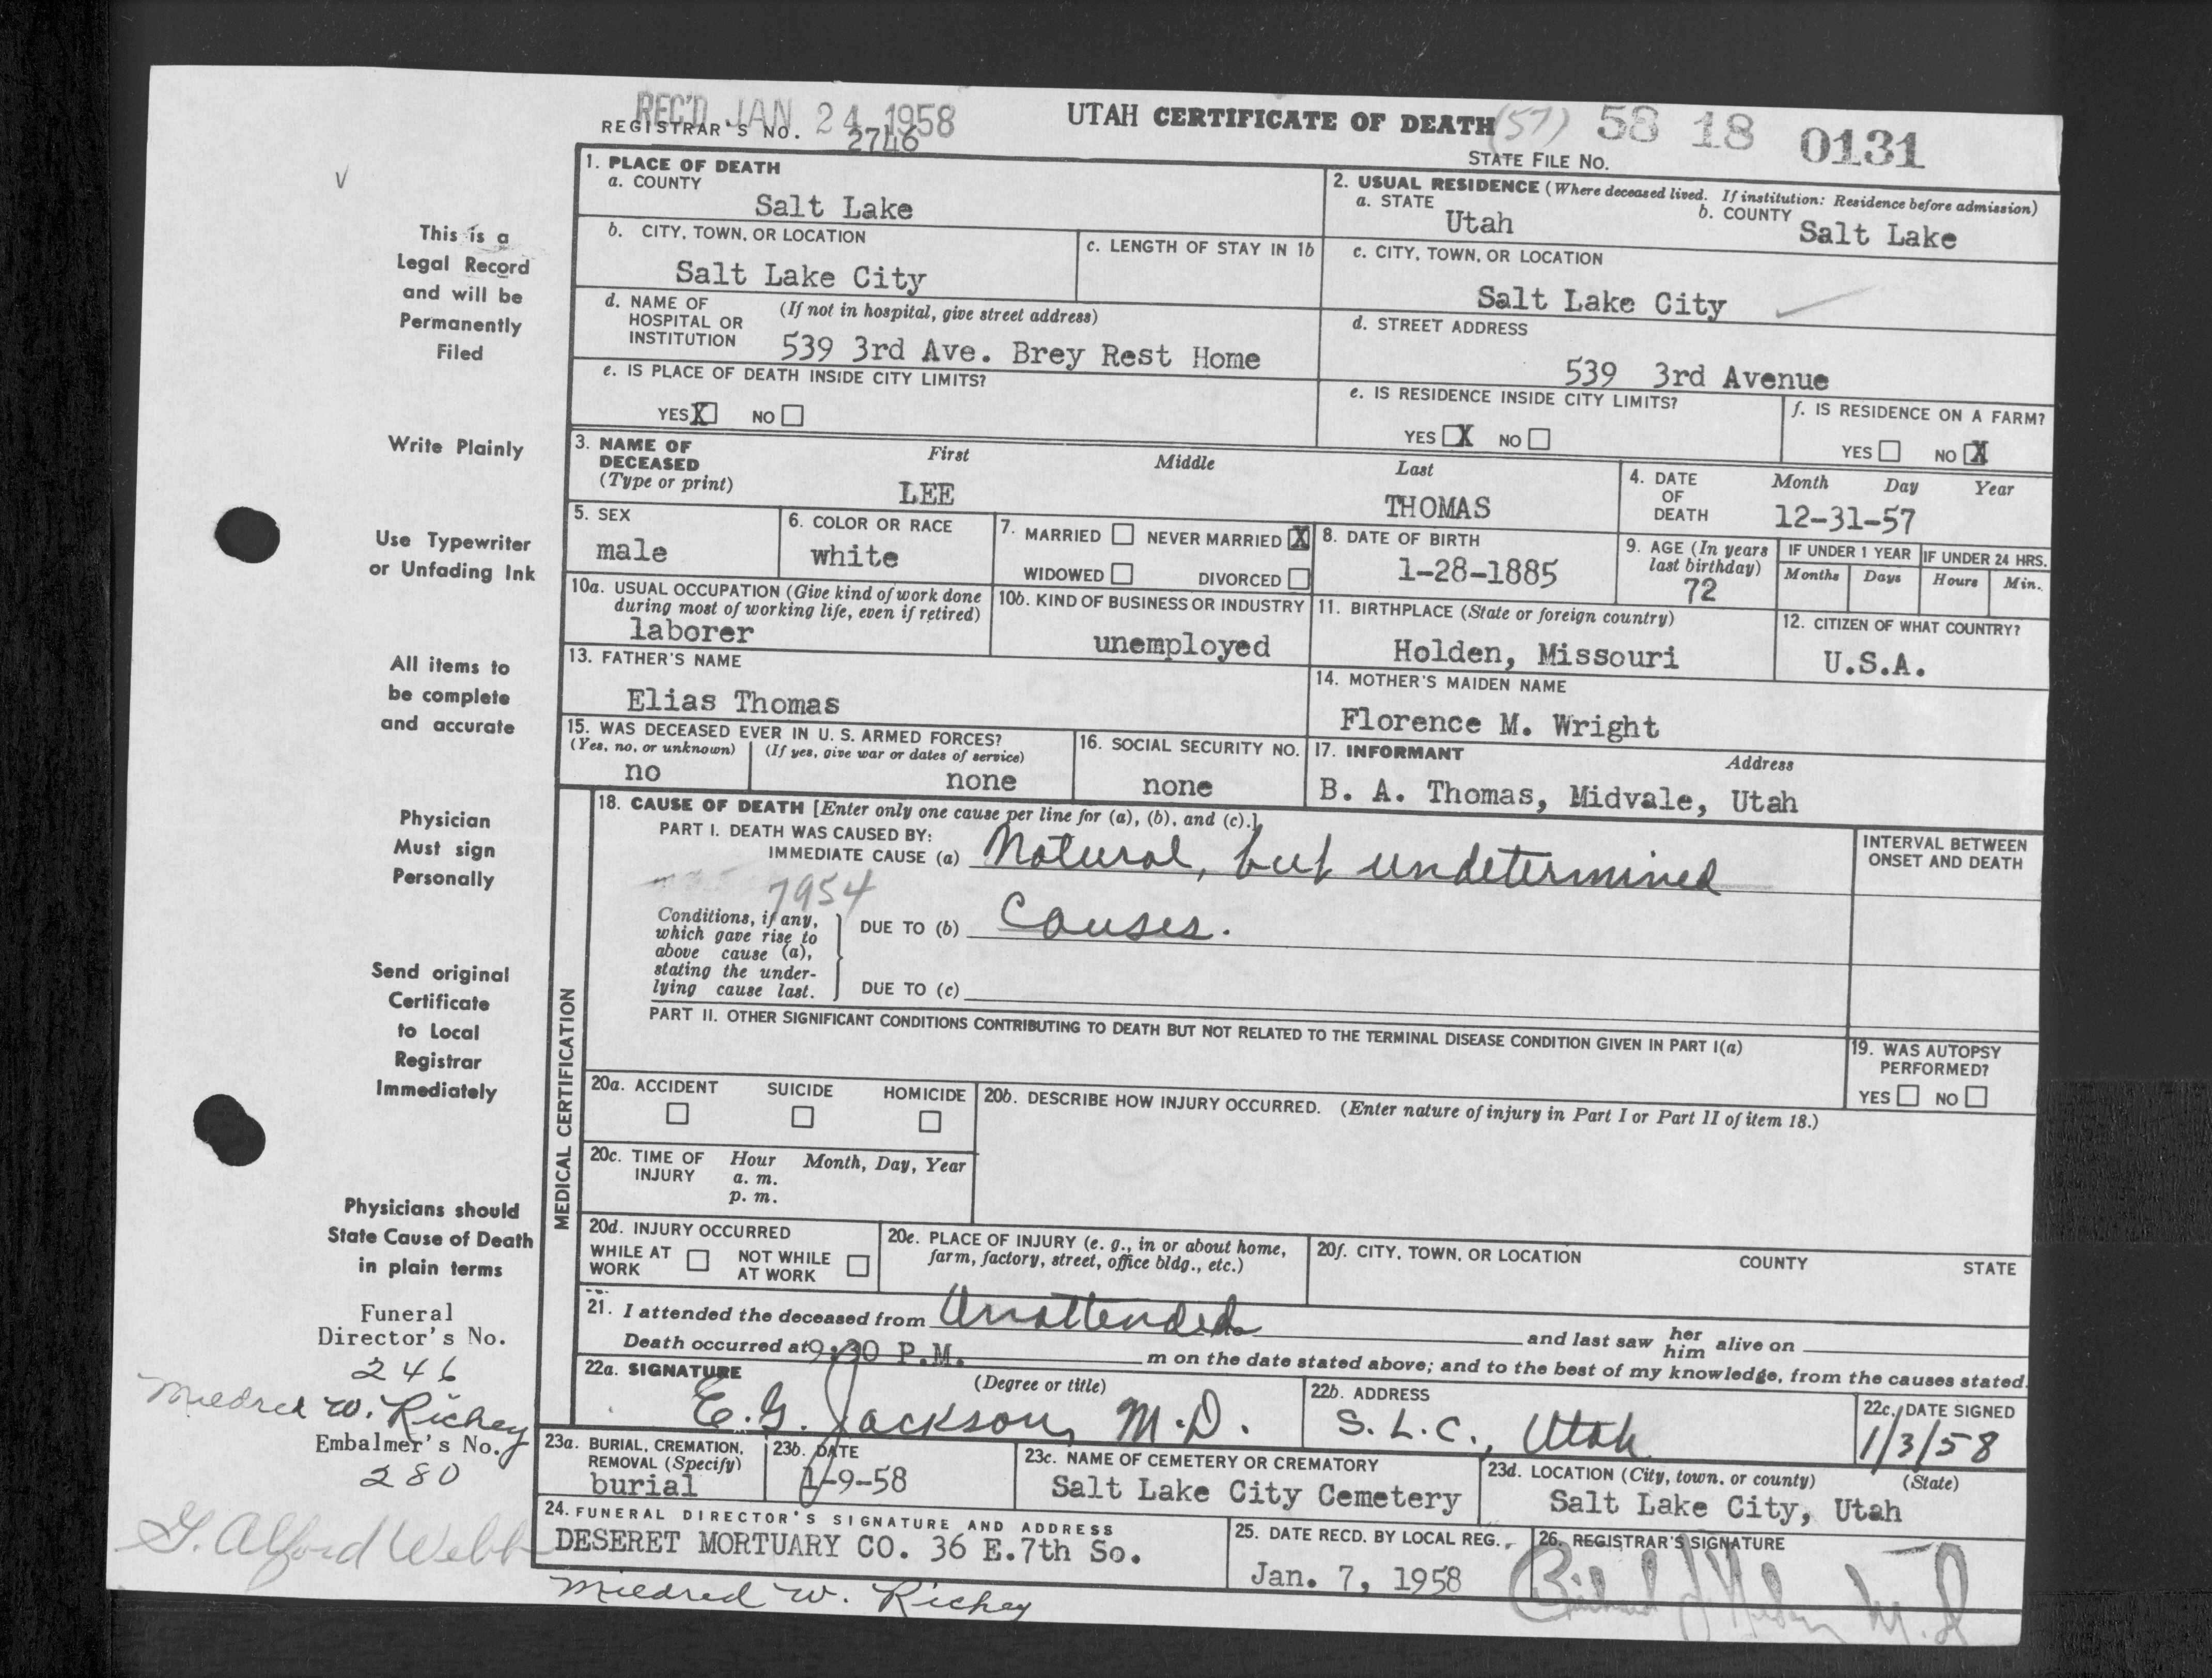 REC'D JAN 24 1958
REGISTRAR'S NO. 2746
UTAH CERTIFICATE OF DEATH (57) 58 18 0131
STATE FILE NO.
This is a
Legal Record
and will be
Permanently
Filed
Write Plainly
Use Typewriter
or Unfading Ink
All items to
be complete
and accurate
Physician
Must sign
Personally
Send original
Certificate
to Local
Registrar
Immediately
Physicians should
State Cause of Death
in plain terms
Funeral
Director's No.
246
Mildred W. Richey
Embalmer's No.
280
G. Alford Webb
1. PLACE OF DEATH
a. COUNTY
Salt Lake
2. USUAL RESIDENCE (Where deceased lived. If institution: Residence before admission)
a. STATE Utah
b. COUNTY Salt Lake
b. CITY, TOWN, OR LOCATION
Salt Lake City
c. LENGTH OF STAY IN 1b
c. CITY, TOWN, OR LOCATION
Salt Lake City
d. NAME OF HOSPITAL OR INSTITUTION (If not in hospital, give street address)
539 3rd Ave. Brey Rest Home
d. STREET ADDRESS
539 3rd Avenue
e. IS PLACE OF DEATH INSIDE CITY LIMITS?
YES X NO
e. IS RESIDENCE INSIDE CITY LIMITS?
YES X NO
f. IS RESIDENCE ON A FARM?
YES NO X
3. NAME OF DECEASED (Type or print)
First Middle Last
LEE THOMAS
4. DATE OF DEATH Month Day Year
12-31-57
5. SEX
male
6. COLOR OR RACE
white
7. MARRIED NEVER MARRIED X
WIDOWED DIVORCED
8. DATE OF BIRTH
1-28-1885
9. AGE (In years last birthday)
72
IF UNDER 1 YEAR
Months Days
IF UNDER 24 HRS.
Hours Min.
10a. USUAL OCCUPATION (Give kind of work done during most of working life, even if retired)
laborer
10b. KIND OF BUSINESS OR INDUSTRY
unemployed
11. BIRTHPLACE (State or foreign country)
Holden, Missouri
12. CITIZEN OF WHAT COUNTRY?
U.S.A.
13. FATHER'S NAME
Elias Thomas
14. MOTHER'S MAIDEN NAME
Florence M. Wright
15. WAS DECEASED EVER IN U. S. ARMED FORCES?
(Yes, no, or unknown) (If yes, give war or dates of service)
no none
16. SOCIAL SECURITY NO.
none
17. INFORMANT Address
B. A. Thomas, Midvale, Utah
MEDICAL CERTIFICATION
18. CAUSE OF DEATH [Enter only one cause per line for (a), (b), and (c).]
PART I. DEATH WAS CAUSED BY:
IMMEDIATE CAUSE (a) Natural, but undetermined
7954
INTERVAL BETWEEN ONSET AND DEATH
Conditions, if any,
which gave rise to
above cause (a),
stating the under-
lying cause last.
DUE TO (b) Causes.
DUE TO (c)
PART II. OTHER SIGNIFICANT CONDITIONS CONTRIBUTING TO DEATH BUT NOT RELATED TO THE TERMINAL DISEASE CONDITION GIVEN IN PART I(a)
19. WAS AUTOPSY PERFORMED?
YES NO
20a. ACCIDENT SUICIDE HOMICIDE
20b. DESCRIBE HOW INJURY OCCURRED. (Enter nature of injury in Part I or Part II of item 18.)
20c. TIME OF INJURY Hour Month, Day, Year
a. m.
p. m.
20d. INJURY OCCURRED
WHILE AT WORK NOT WHILE AT WORK
20e. PLACE OF INJURY (e. g., in or about home, farm, factory, street, office bldg., etc.)
20f. CITY, TOWN, OR LOCATION COUNTY STATE
21. I attended the deceased from Unattended and last saw her him alive on
Death occurred at 9:30 P.M. m on the date stated above; and to the best of my knowledge, from the causes stated.
22a. SIGNATURE (Degree or title)
E. G. Jackson, M.D.
22b. ADDRESS
S. L. C., Utah
22c. DATE SIGNED
1/3/58
23a. BURIAL, CREMATION, REMOVAL (Specify)
burial
23b. DATE
1-9-58
23c. NAME OF CEMETERY OR CREMATORY
Salt Lake City Cemetery
23d. LOCATION (City, town, or county) (State)
Salt Lake City, Utah
24. FUNERAL DIRECTOR'S SIGNATURE AND ADDRESS
DESERET MORTUARY CO. 36 E.7th So.
Mildred W. Richey
25. DATE RECD. BY LOCAL REG.
Jan. 7, 1958
26. REGISTRAR'S SIGNATURE
M.D.